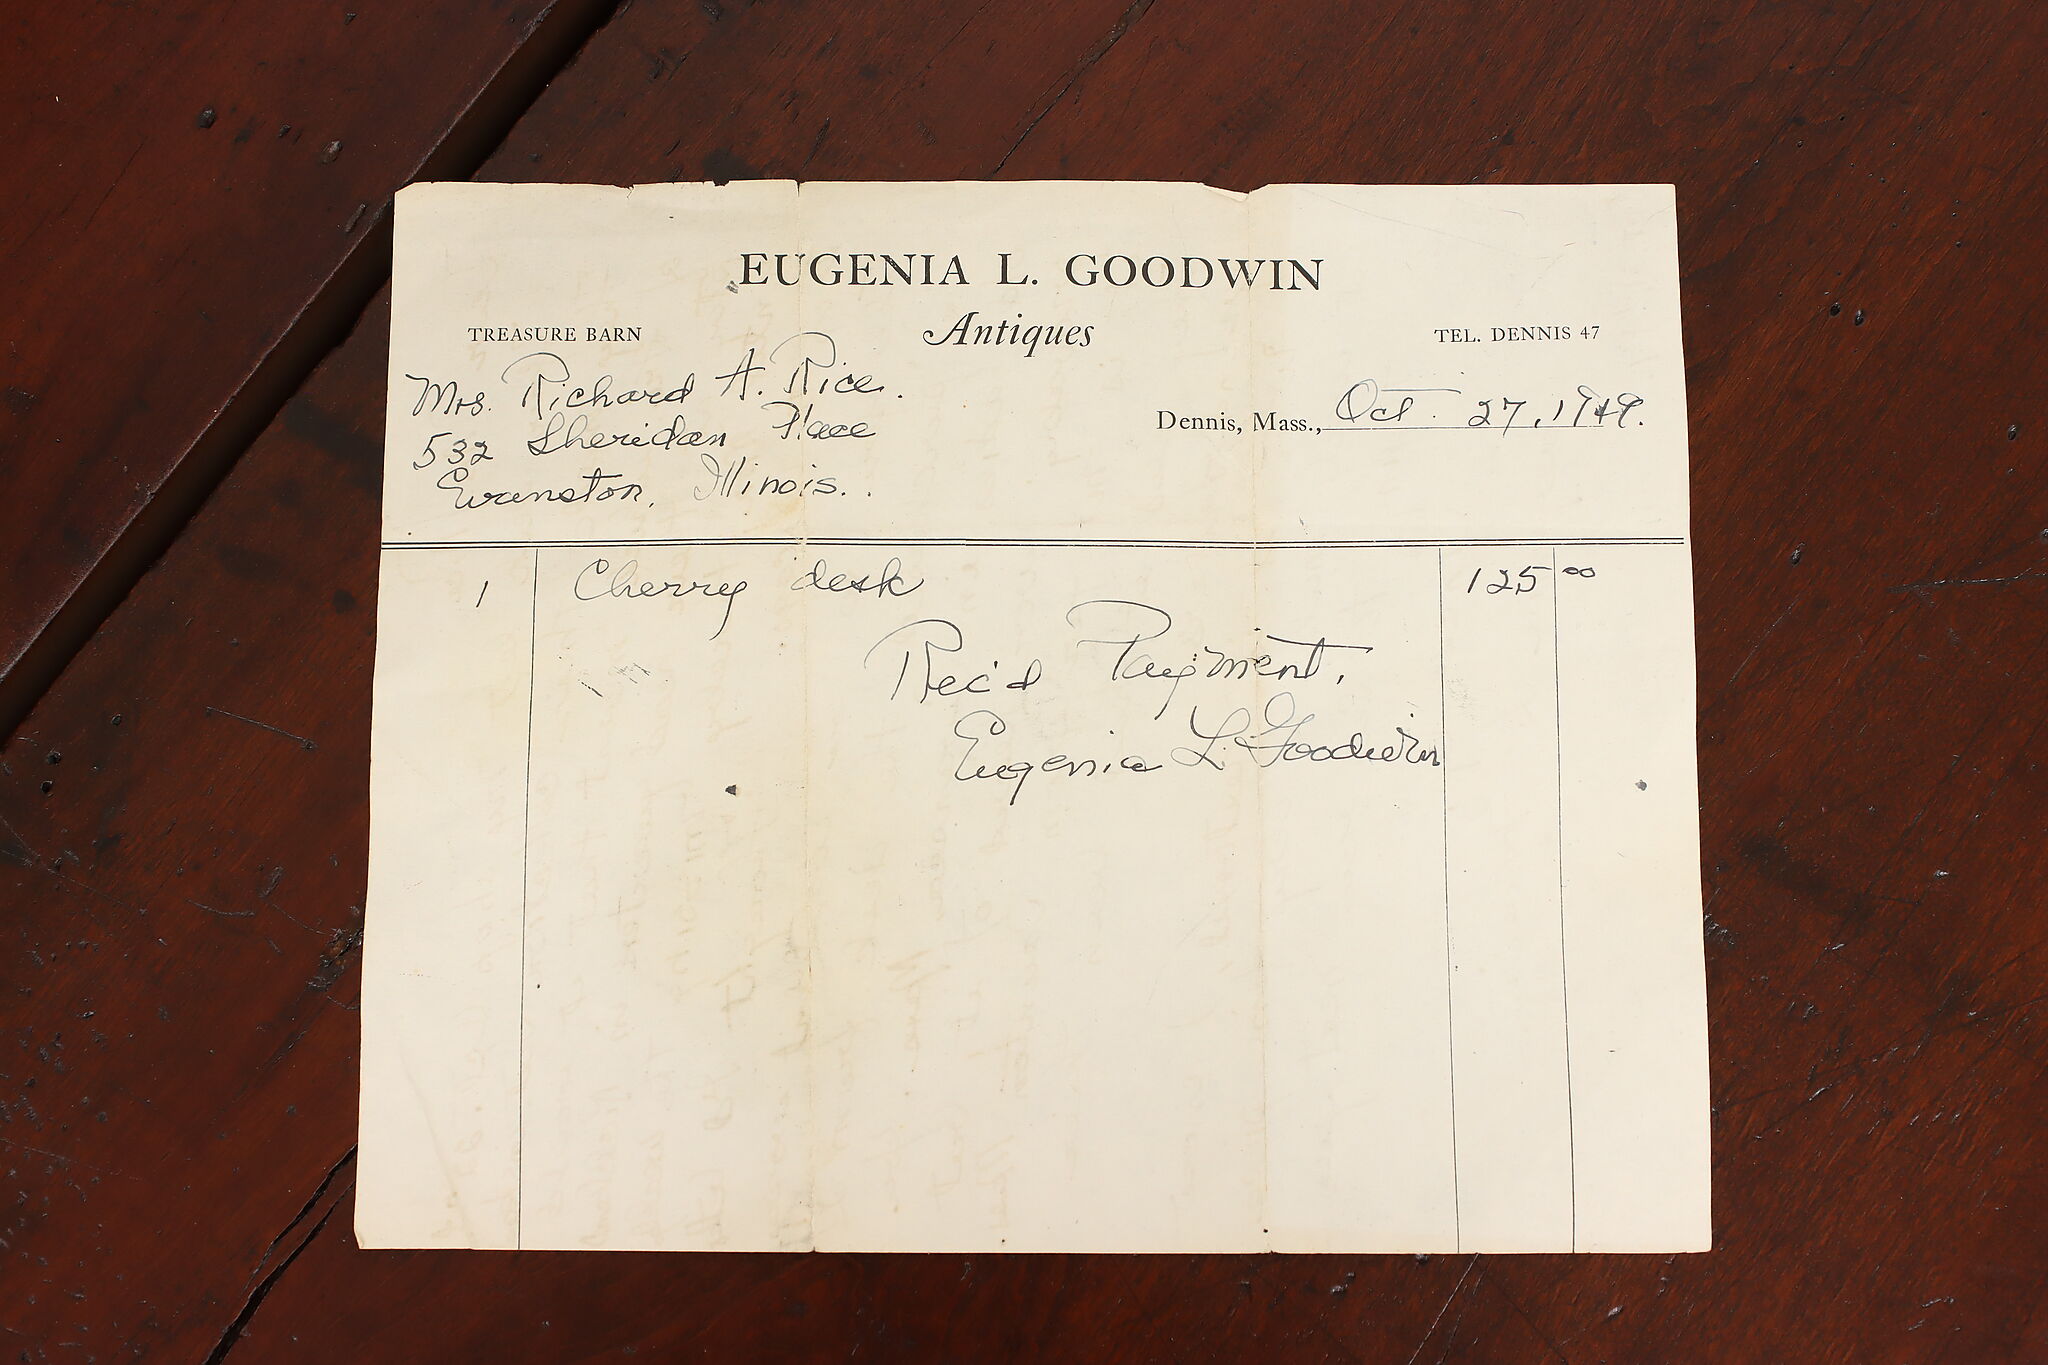 EUGENIA L. GOODWIN
TREASURE BARN Antiques TEL. DENNIS 47
Mrs. Richard A. Rice.
532 Sheridan Place
Evanston, Illinois.
Dennis, Mass., Oct. 27, 1949.
1 Cherry desk 125 00
Rec'd Payment,
Eugenia L. Goodwin